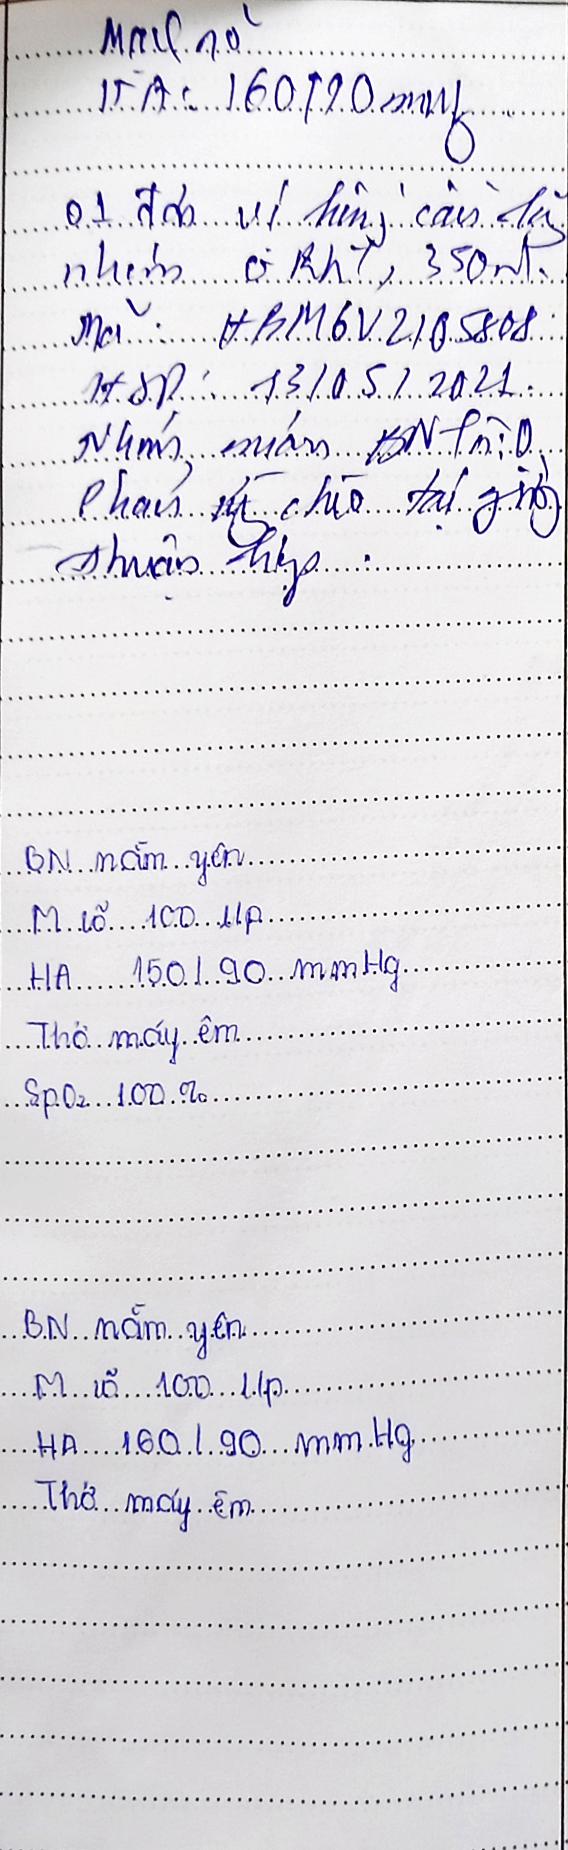 Mạch rõ
HA: 160/90 mmHg
01 đơn vị hồng cầu lắng
nhóm O Rh+, 350ml.
Mã: HBM6V2105808
HSD: 13/05/2021.
Nhóm máu BN là: O
chéo tại giường
thuận hợp.
BN nằm yên
M rõ 100 l/p
HA 150/90 mmHg
Thở máy êm
SpO2 100%
BN nằm yên
M rõ 100 l/p
HA 160/90 mmHg
Thở máy êm